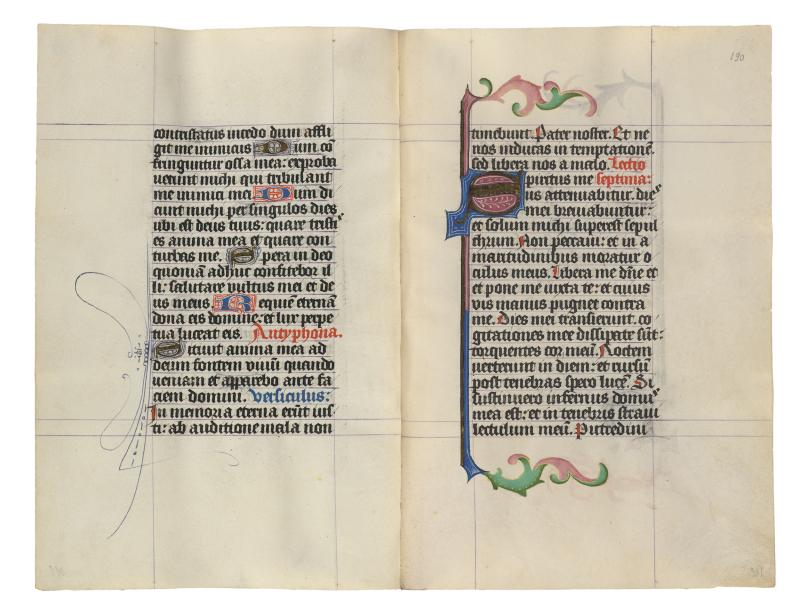 contristatus incedo dum affli
git me inimicus Dum cō
fringuntur ossa mea: exproba
verunt michi qui tribulant
me inimici mei Dum di
cunt michi per singulos dies
ubi est deus tuus: quare tristi
es anima mea et quare con
turbas me. Spera in deo
quoniā adhuc confitebor il
li: salutare vultus mei et de
us meus Requiē eternā
dona eis domine: et lux perpe
tua luceat eis. Antyphona.
Sitivit anima mea ad
deum fontem vivū quando
veniam et apparebo ante fa
ciem domini. Versiculus:
In memoria eterna erūt ius
ti: ab auditione mala non
190
timebunt. Pater noster. Et ne
nos inducas in temptationē.
sed libera nos a malo. Lectio
Spiritus me septima:
us attenuabitur. die
mei breviabuntur:
et solum michi superest sepul
chrum. Non peccavi: et in a
maritudinibus moratur o
culus meus. Libera me dñe et
et pone me iuxta te: et cuius
vis manus pugnet contra
me. Dies mei transierunt. co
gitationes mee dissipate sūt:
torquentes cor meū. Noctem
verterunt in diem: et rursū
post tenebras spero lucē. Si
sustinuero infernus domus
mea est: et in tenebris stravi
lectulum meū. Putredini